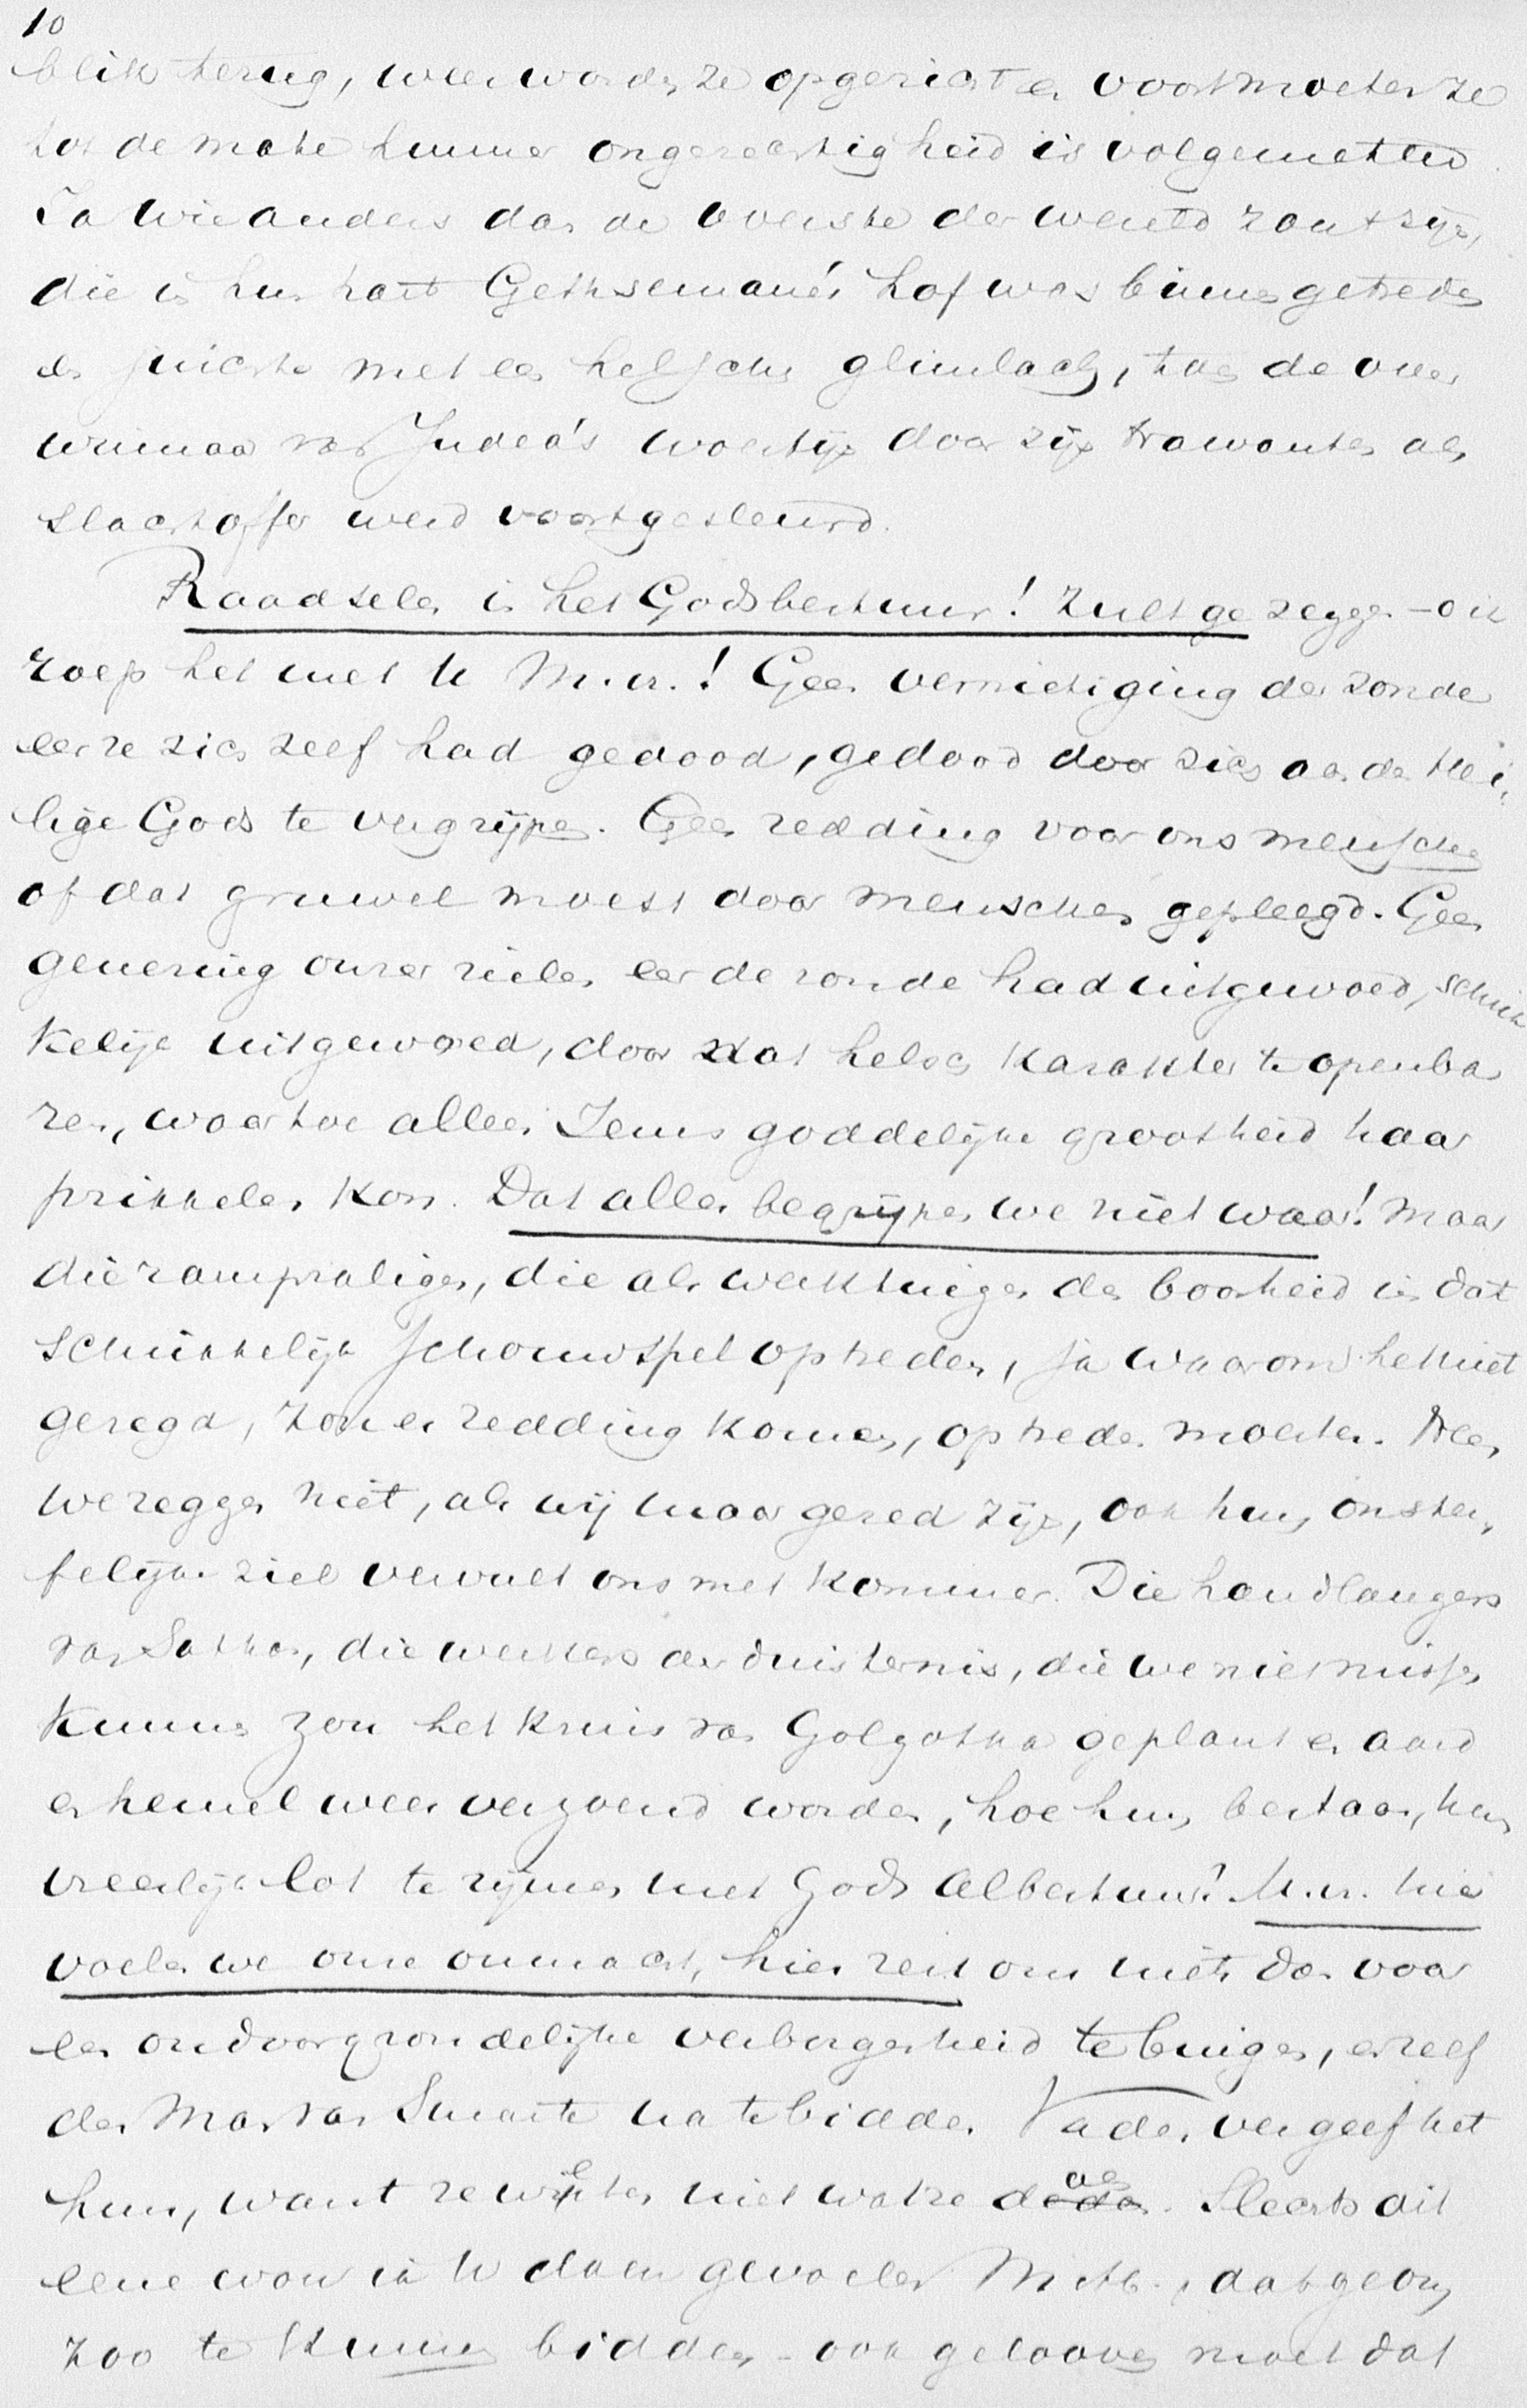 10
blik terug, weer worden ze opgericht en voort moeten ze
tot de mate hunner ongerechtigheid is volgemeten.
Ja wie anders dan de overste der wereld zou 't zijn,
die in hun hart Gethsemané's hof was binnengetreden
en juichte met een helschen glimlach, toen de over
winnaar van Judea's woestijn door zijn trawanten als
slachtoffer werd voortgesleurd.
Raadselen in het Godsbestuur! Zult ge zeggen – o ik
roep het met U M. vr.! Geen vernietiging der zonde
eer ze zich zelf had gedood, gedood door zich aan den Hei,
lige Gods te vergrijpen. Geen redding voor ons menschen
of dat gruwel moest door menschen gepleegd. Geen
genezing onzer zielen eer de zonde had uitgewoed, schrik
kelijk uitgewoed, door dat helsch karakter te openba
ren, waartoe alleen Jezus goddelijke grootheid haar
prikkelen kon. Dat alles begrijpen we niet waar! Maar
die rampzaligen, die als werktuigen der boosheid in dat
schrikkelijk schouwspel optreden, ja waarom het niet
gezegd, zou er redding komen, optreden moesten. Neen
we zeggen niet, als wij maar gered zijn, ook hun onster,
felijke ziel vervult ons met kommer. Die handlangers
van Sathan, die werkers der duisternis, die we niet missen
kunnen zou het kruis van Golgotha geplant en aard
en hemel weer verzoend worden, hoe hun bestaan, hun
vreeslijk lot te rijmen met Gods Albestuur? M. vr. hier
voelen we onze onmacht, hier rest ons niets dan voor
een ondoorgrondelijke verborgenheid te buigen, en zelf
den Man van Smarte na te bidden. Vader, vergeef het
hun, want ze wisten niet wat ze deden. Slechts dit
eene wou ik U doen gevoelen M. vr., dat ge om
zoo te kunnen bidden – ook gelooven moet dat